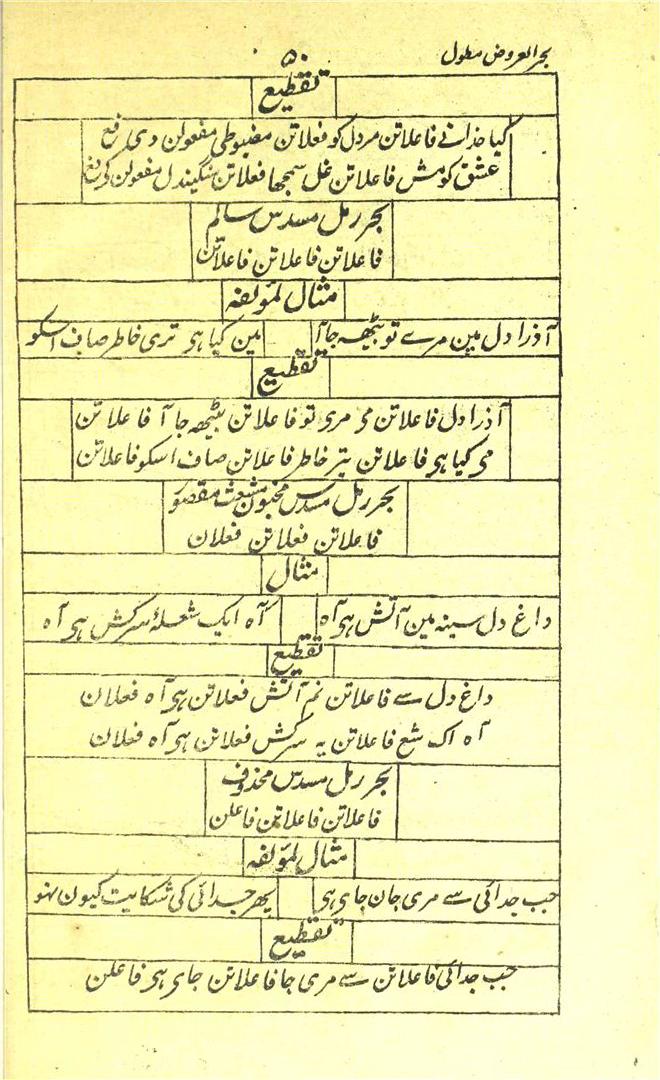 بحر العروض مطول
۵۰
تقطیع
کیا خدا نے فاعلاتن مر دل کو فعلاتن مضبوطی مفعولن دی رفع
عشق کو مش فاعلاتن غل سمجھا فعلاتن سنگیندل مفعولن کی رفع
بحر رمل مسدس سالم
فاعلاتن فاعلاتن فاعلاتن
مثال لمؤلفہ
آ ذرا دل مین مرے تو بیٹھہ جا آ مین کیا ہی تری خاطر صاف اسکو
تقطیع
آ ذرا دل فاعلاتن می مری تو فاعلاتن بیٹھہ جا آ فاعلاتن
می کیا ہی فاعلاتن تیر خاطر فاعلاتن صاف اسکو فاعلاتن
بحر رمل مسدس مخبون مشعث مقصور
فاعلاتن فعلاتن فعلان
مثال
داغ دل سینہ مین آتش ہی آہ آہ ایک شعلۂ سرکش ہی آہ
تقطیع
داغ دل سے فاعلاتن نم آتش فعلاتن ہی آہ فعلان
آہ اک شع فاعلاتن یہ سرکش فعلاتن ہی آہ فعلان
بحر رمل مسدس محذوف
فاعلاتن فاعلاتن فاعلن
مثال لمؤلفہ
جب جدائی سے مری جان جای ہی پھر جدائی کی شکایت کیون نہو
تقطیع
جب جدائی فاعلاتن سے مری جا فاعلاتن جای ہی فاعلن